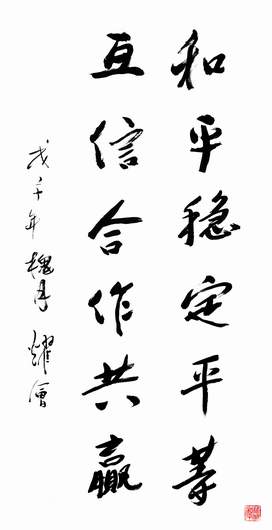 和平稳定平等
互信合作共赢
戊子年槐月耀會